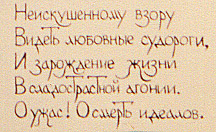 Неискушенному взору
Видеть любовные судороги,
И зарождение жизни
В сладострастной агонии.
О ужас! О смерть идеалов.